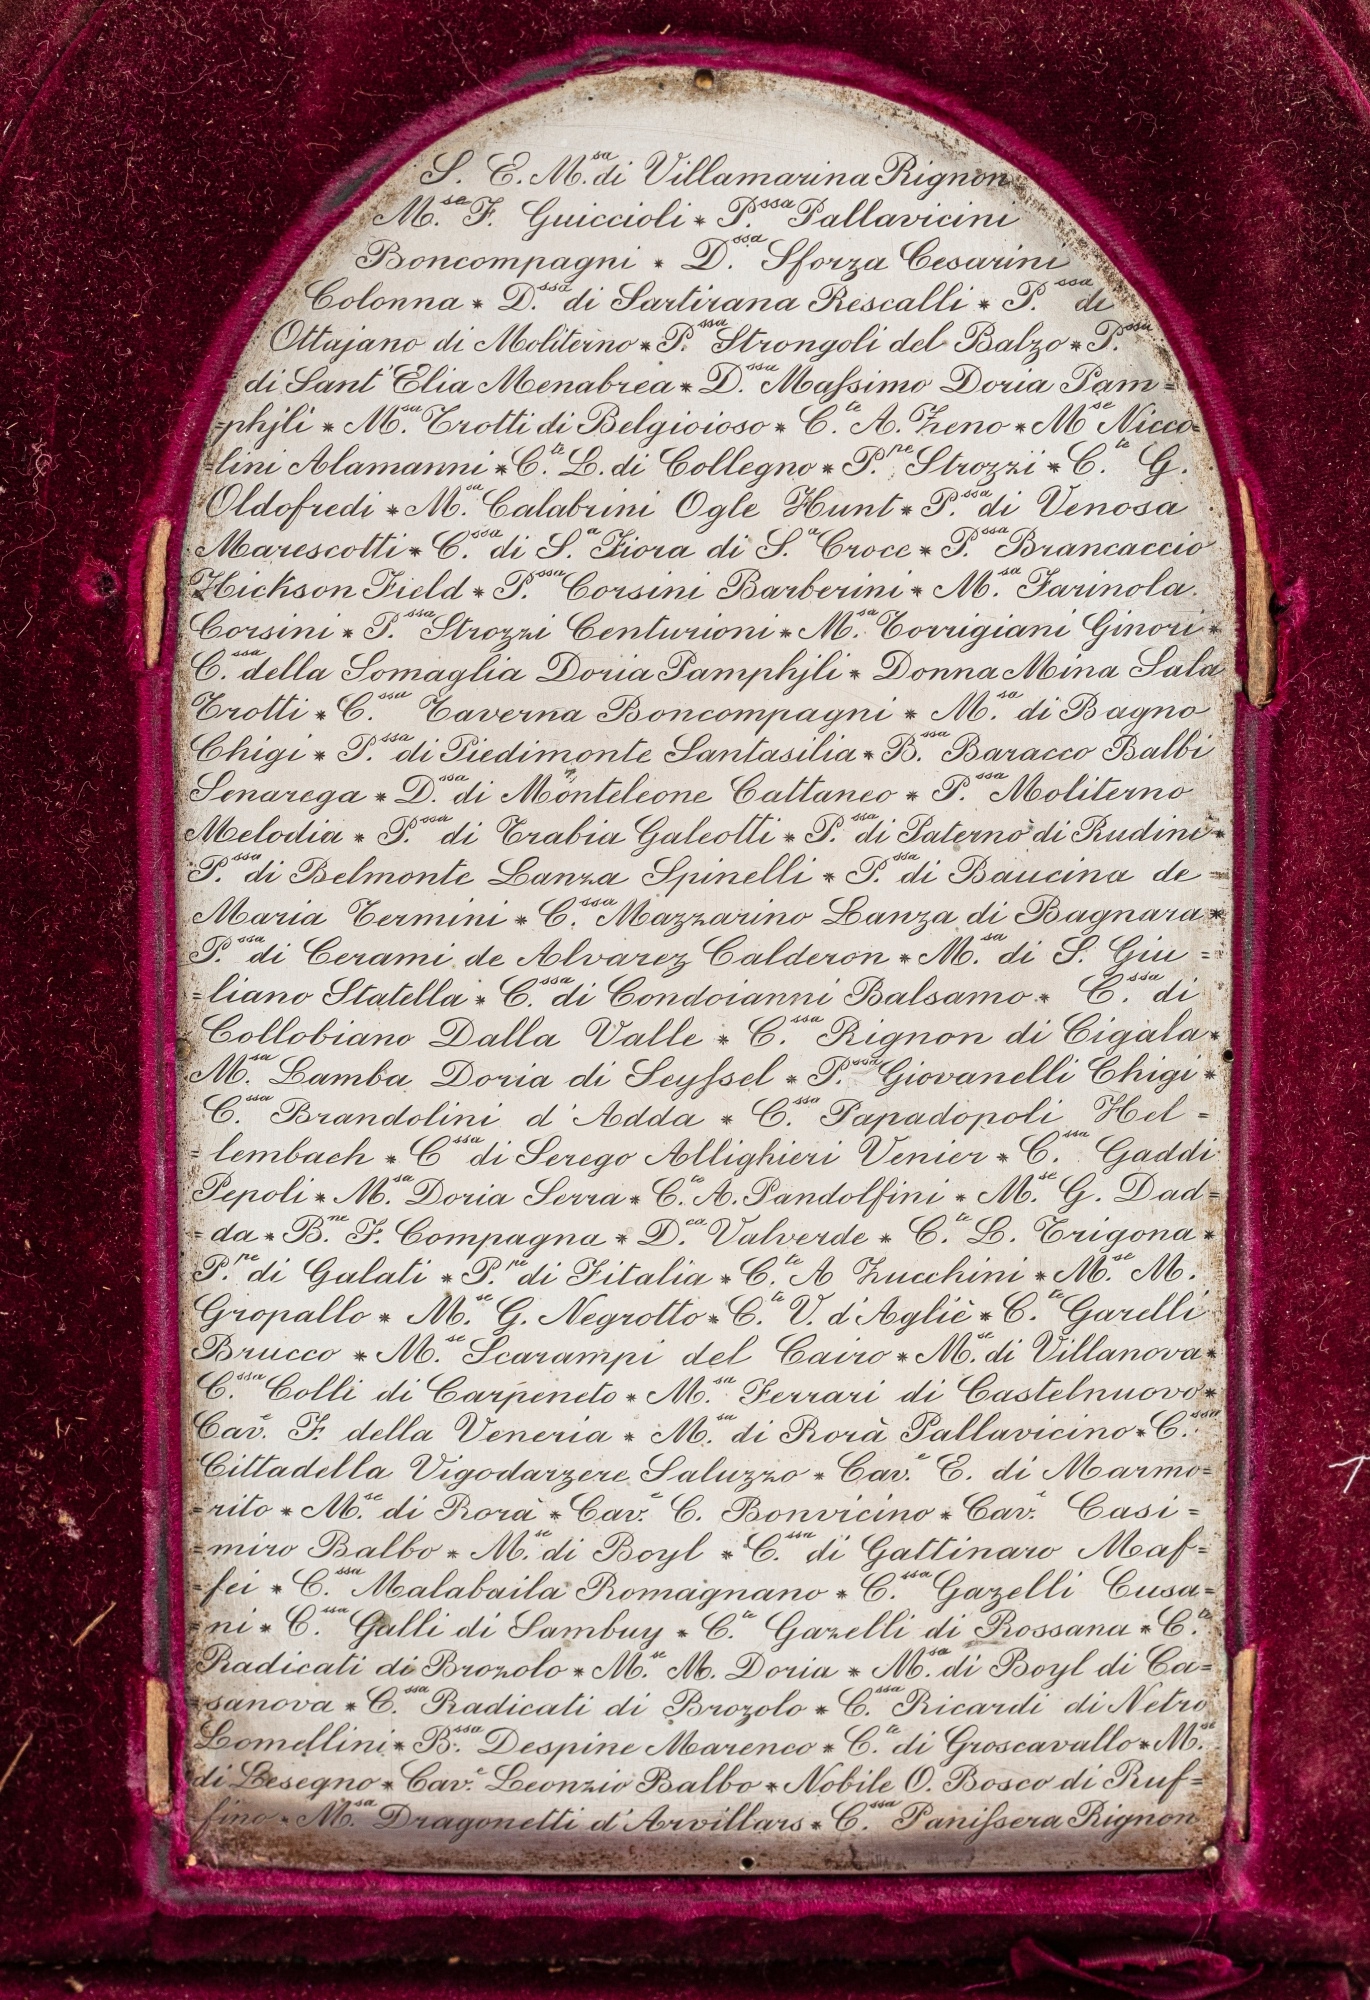 S. E. M.sa di Villamarina Rignon
M.se F. Guiccioli * P.ssa Pallavicini
Boncompagni * D.ssa Sforza Cesarini
Colonna * D.ssa di Sartirana Rescalli * P.ssa di
Ottajano di Moliterno * P.ssa Strongoli del Balzo * P.ssa
di Sant'Elia Menabrea * D.ssa Maſsimo Doria Pam=
=phjli * M.sa Trotti di Belgioioso * C.te A. Zeno * M.se Nicco=
=lini Alamanni * C.te L. di Collegno * P.pe Strozzi * C.te G.
Oldofredi * M.sa Calabrini Ogle Hunt * P.ssa di Venosa
Marescotti * C.ssa di S.a Fiora di S.a Croce * P.ssa Brancaccio
Hickson Field * P.ssa Corsini Barberini * M.sa Farinola
Corsini * P.ssa Strozzi Centurioni * M.sa Torrigiani Ginori *
C.ssa della Somaglia Doria Pamphjli * Donna Mina Sala
Trotti * C.ssa Taverna Boncompagni * M.sa di Bagno
Chigi * P.ssa di Piedimonte Santasilia * B.ssa Baracco Balbi
Senarega * D.ssa di Monteleone Cattaneo * P.ssa Moliterno
Melodia * P.ssa di Trabia Galeotti * P.ssa di Paternò di Rudinì *
P.ssa di Belmonte Lanza Spinelli * P.ssa di Baucina de =
Maria Termini * C.ssa Mazzarino Lanza di Bagnara *
P.ssa di Cerami de Alvarez Calderon * M.sa di S. Giu =
=liano Statella * C.ssa di Condoianni Balsamo * C.ssa di
Collobiano Dalla Valle * C.ssa Rignon di Cigala *
M.sa Lamba Doria di Seyſsel * P.ssa Giovanelli Chigi *
C.ssa Brandolini d'Adda * C.ssa Papadopoli Hel =
= lembach * C.ssa di Serego Allighieri Venier * C.ssa Gaddi
Pepoli * M.sa Doria Serra * C.te A. Pandolfini * M.se G. Dad=
= da * B.ne F. Compagna * D.ca Valverde * C.te L. Trigona *
P.pe di Galati * P.pe di Fitalia * C.te A Zucchini * M.se M.
Gropallo * M.se G. Negrotto * C.te V. d'Agliè * C.te Garelli
Brucco * M.se Scarampi del Cairo * M.se di Villanova *
C.ssa Colli di Carpeneto * M.sa Ferrari di Castelnuovo *
Cav.e F. della Veneria * M.sa di Rorà Pallavicino * C.ssa
Cittadella Vigodarzere Saluzzo * Cav.e E. di Marmo=
=rito * M.se di Rorà * Cav.e C. Bonvicino * Cav.e Casi =
=miro Balbo * M.se di Boyl * C.ssa di Gattinaro Maf=
=fei * C.ssa Malabaila Romagnano * C.ssa Gazelli Cusa=
=ni * C.ssa Galli di Sambuy * C.te Gazelli di Rossana * C.te
Radicati di Brozolo * M.se M. Doria * M.sa di Boyl di Ca=
=sanova * C.ssa Radicati di Brozolo * C.ssa Ricardi di Netro
Lomellini * B.ssa Despine Marenco * C.te di Groscavallo * M.se
di Lesegno * Cav.e Leonzio Balbo * Nobile O. Bosco di Ruf=
fino * M.sa Dragonetti d'Arvillars * C.ssa Paniſsera Rignon